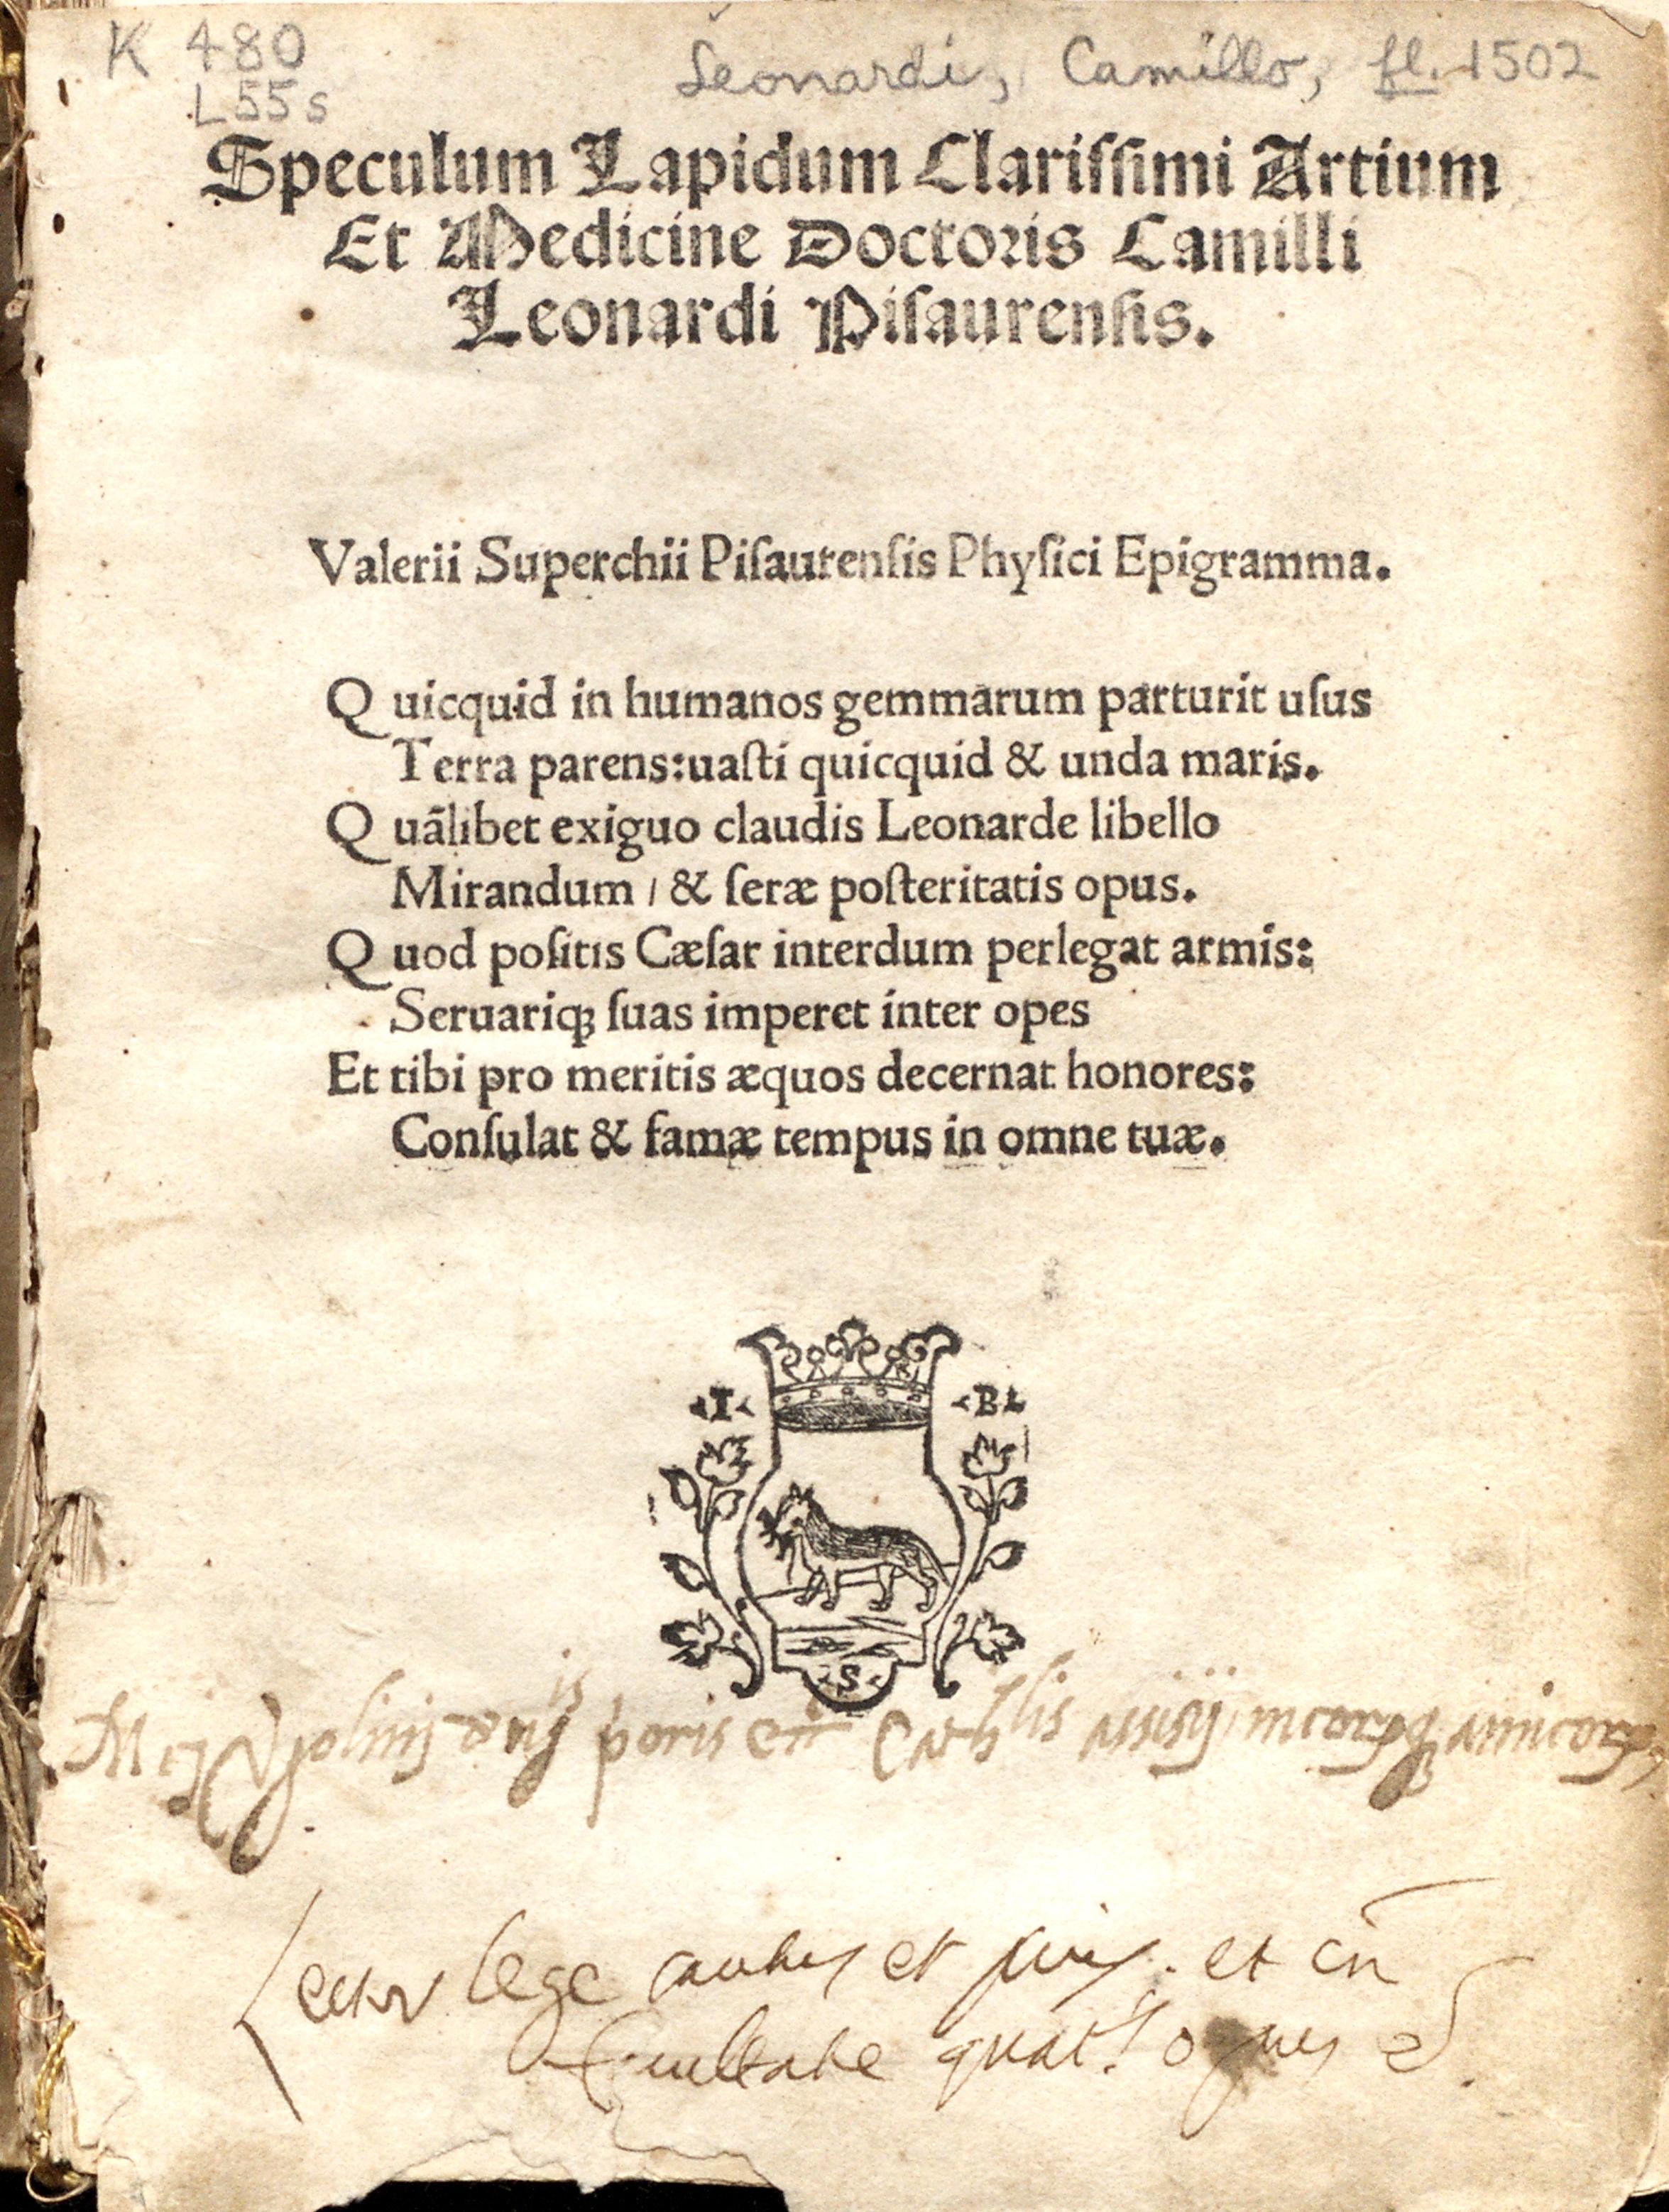 K 480
L55s
Leonardi, Camillo, fl. 1502
Speculum Lapidum Clariſſimi Artium
Et Medicine Doctoris Camilli
Leonardi Piſaurenſis.
Valerii Superchii Piſaurenſis Phyſici Epigramma.
Q uicquid in humanos gemmarum parturit uſus
Terra parens:uaſti quicquid & unda maris.
Q uãlibet exiguo claudis Leonarde libello
Mirandum / & ſeræ poſteritatis opus.
Q uod poſitis Cæſar interdum perlegat armis:
Seruariqꝫ ſuas imperet inter opes
Et tibi pro meritis æquos decernat honores:
Conſulat & famæ tempus in omne tuæ.
I B
S
poris et assisij amicorum
lege et et